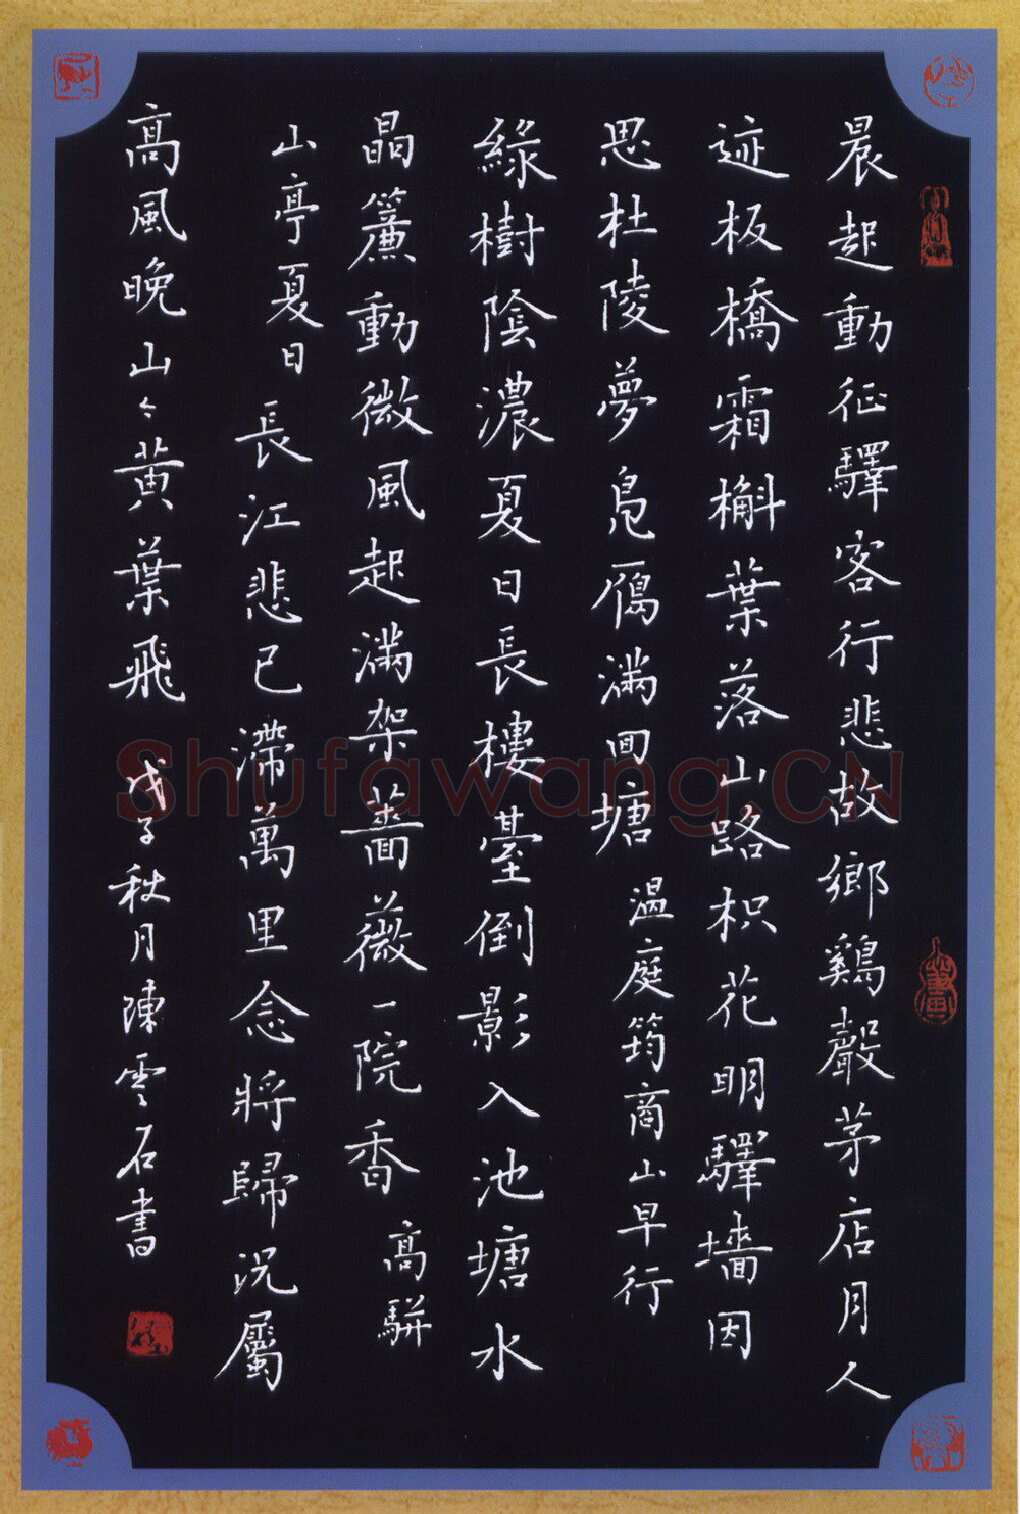 晨起動征驛客行悲故鄉鷄聲茅店月人
迹板橋霜槲葉落山路枳花明驛墻因
思杜陵夢鳧鴈滿回塘 温庭筠商山早行
綠樹陰濃夏日長樓臺倒影入池塘水
晶簾動微風起滿架薔薇一院香 高駢
山亭夏日 長江悲已滯萬里念將歸況屬
高風晚山々黄葉飛 戊子秋月陳雲石書
Shufawang.CN